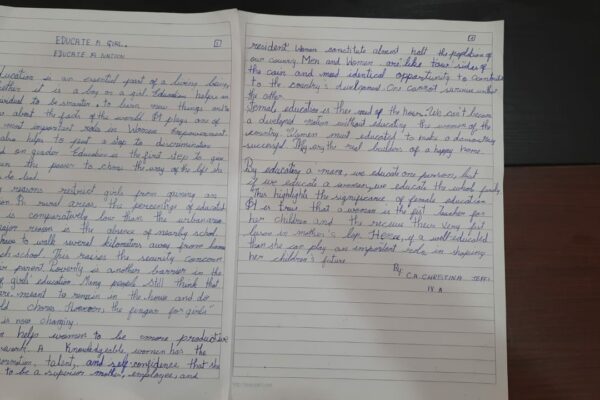 EDUCATE A GIRL.
EDUCATE A NATION
Education is an essential part of a living being
whether it is a boy or a girl. Education helps an
to be smarter, to learn new things and
about the facts of the world. It plays one of
most important role in Women Empowerment.
also helps to put a stop to discrimination
on gender. Education is the first step to give
the power to chose the way of the life she
to be lead.
reasons restrict girls from gaining an
in rural areas. The percentage of educated
is comparatively low than the urban area.
major reason is the absence of nearby school.
have to walk several kilometers away from home
school. This raises the security concern
parent. Poverty is another barrier in the
girls education. Many people still think that
are meant to remain in the house and do
chores. However, the for girls"
is now changing.
helps women to be more productive
work. A knowledgeable women has the
talent, and self-confidence that she
to be a superior mother, employee, and
resident. Women constitute almost half the population of
our country. Men and Women are like two sides of
the coin and need identical opportunity to contribute
to the country's development. One cannot survive without
the other.
Female education is the need of the hour. We can't become
a developed nation without educating the women of the
country. Women must educated to make a democracy
successful. They are the real builders of a happy home.
By educating a man, we educate one person, but
if we educate a women, we educate the whole family
This highlights the significance of female education
It is true that a woman is the first teacher for
her children and the receive their very first
lesson in mother's lap. Hence, if a well-educated
than she can play an important role in shaping
her children's future.
By:
C.A. CHRISTINA
IX A